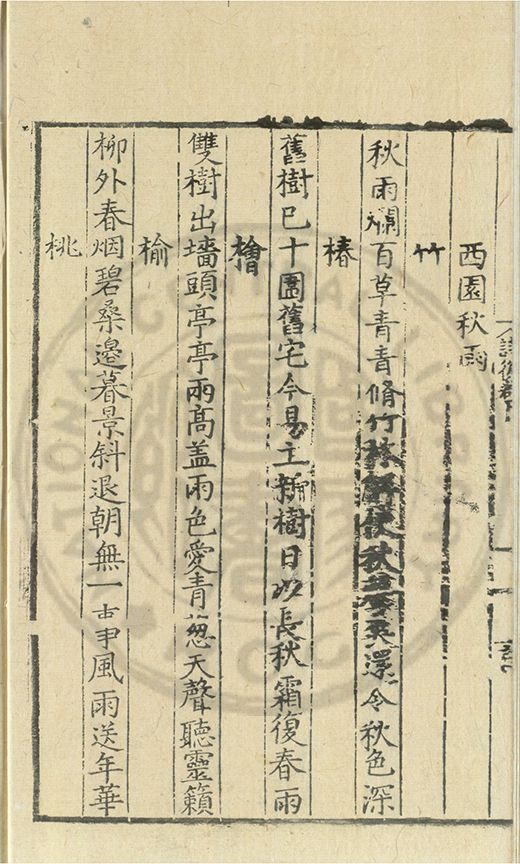 西園秋雨
竹
秋雨爛百草青青脩竹林解使秋令秋色深
椿
舊樹已十圍舊宅今易主新樹日以長秋霜復春雨
檜
雙樹出墻頭亭亭兩高盖雨色愛青葱天聲聽靈籟
榆
柳外春烟碧桑邊暮景斜退朝無一事風雨送年華
桃